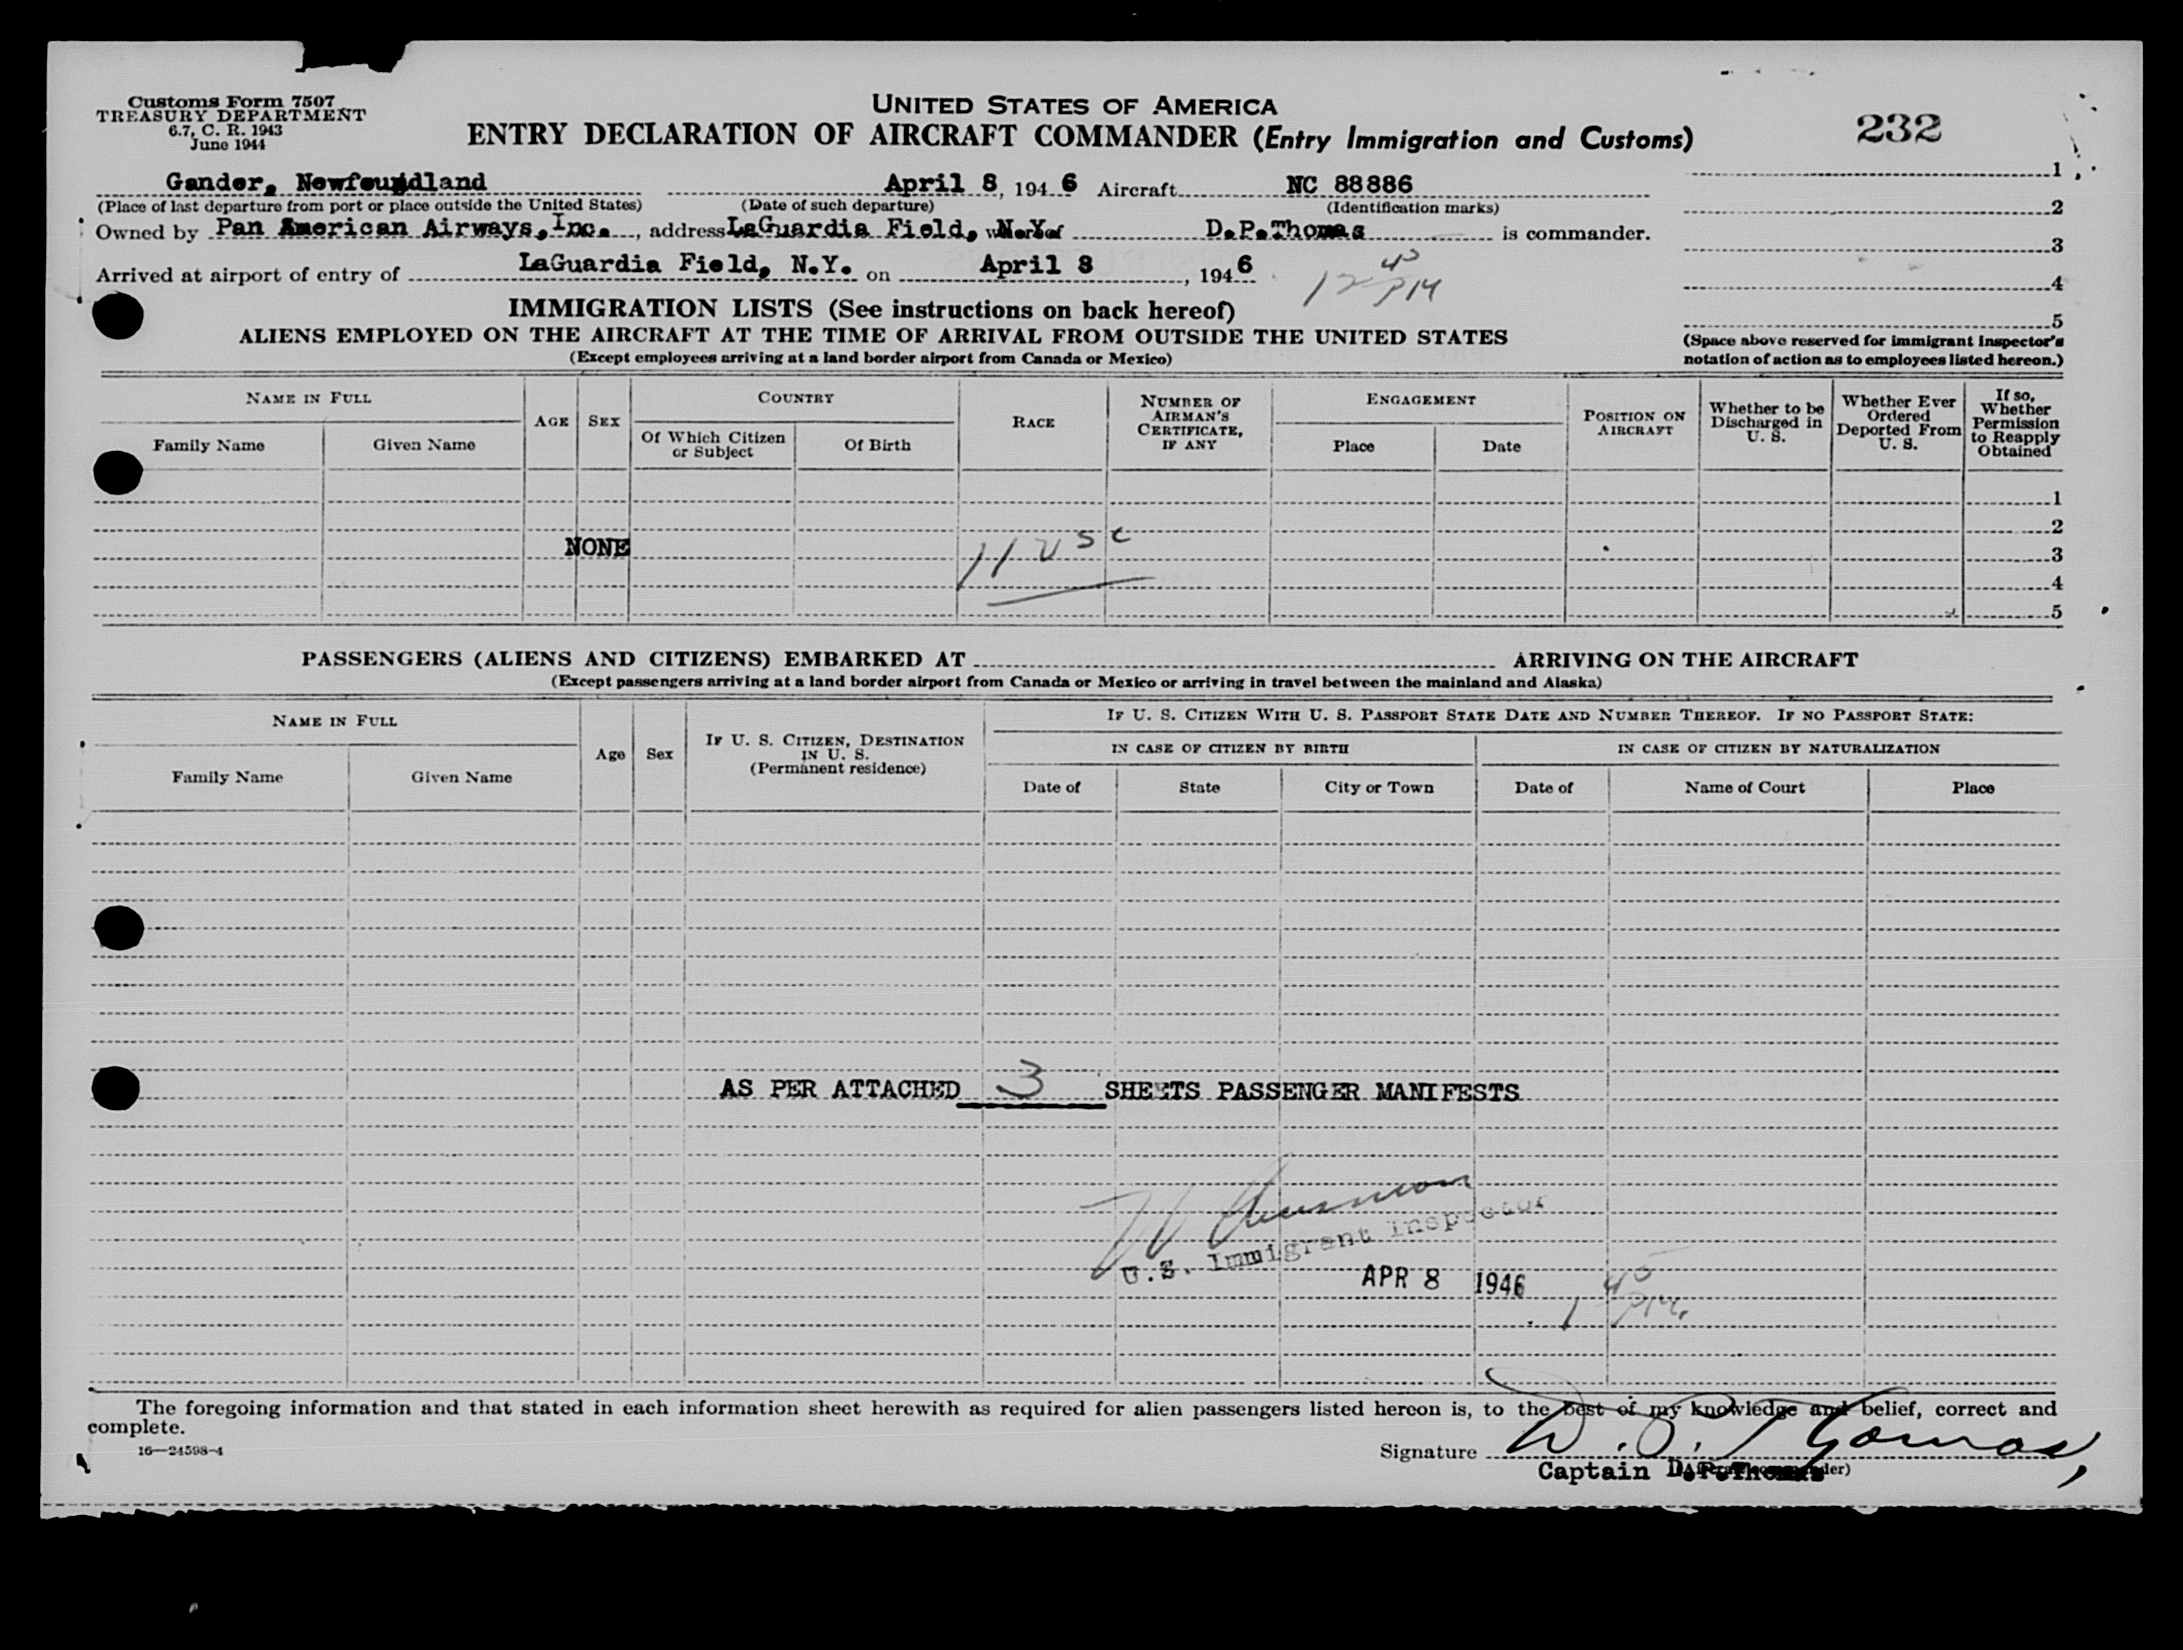 Customs Form 7507
TREASURY DEPARTMENT
6.7, C. R. 1943
June 1944
UNITED STATES OF AMERICA
ENTRY DECLARATION OF AIRCRAFT COMMANDER (Entry Immigration and Customs)
232
Gander, Newfoundland April 8, 1946 Aircraft NC 88886
(Place of last departure from port or place outside the United States) (Date of such departure) (Identification marks)
Owned by Pan American Airways, Inc., address LaGuardia Field, N.Y. D.P.Thomas is commander.
Arrived at airport of entry of LaGuardia Field, N.Y. on April 8, 1946
12 45 PM
1
2
3
4
5
(Space above reserved for immigrant inspector's
notation of action as to employees listed hereon.)
IMMIGRATION LISTS (See instructions on back hereof)
ALIENS EMPLOYED ON THE AIRCRAFT AT THE TIME OF ARRIVAL FROM OUTSIDE THE UNITED STATES
(Except employees arriving at a land border airport from Canada or Mexico)
NAME IN FULL
Family Name
Given Name
AGE
SEX
COUNTRY
Of Which Citizen
or Subject
Of Birth
RACE
NUMBER OF
AIRMAN'S
CERTIFICATE,
IF ANY
ENGAGEMENT
Place
Date
POSITION ON
AIRCRAFT
Whether to be
Discharged in
U. S.
Whether Ever
Ordered
Deported From
U. S.
If so,
Whether
Permission
to Reapply
Obtained
1
2
NONE 11 USC 3
4
5
PASSENGERS (ALIENS AND CITIZENS) EMBARKED AT ARRIVING ON THE AIRCRAFT
(Except passengers arriving at a land border airport from Canada or Mexico or arriving in travel between the mainland and Alaska)
NAME IN FULL
Family Name
Given Name
Age
Sex
IF U. S. CITIZEN, DESTINATION
IN U. S.
(Permanent residence)
IF U. S. CITIZEN WITH U. S. PASSPORT STATE DATE AND NUMBER THEREOF. IF NO PASSPORT STATE:
IN CASE OF CITIZEN BY BIRTH
IN CASE OF CITIZEN BY NATURALIZATION
Date of
State
City or Town
Date of
Name of Court
Place
AS PER ATTACHED 3 SHEETS PASSENGER MANIFESTS
U.S. Immigrant Inspector
APR 8 1946
1 45 PM
The foregoing information and that stated in each information sheet herewith as required for alien passengers listed hereon is, to the best of my knowledge and belief, correct and
complete.
16—24598-4
Signature D. P. Thomas
Captain D.P.Thomas